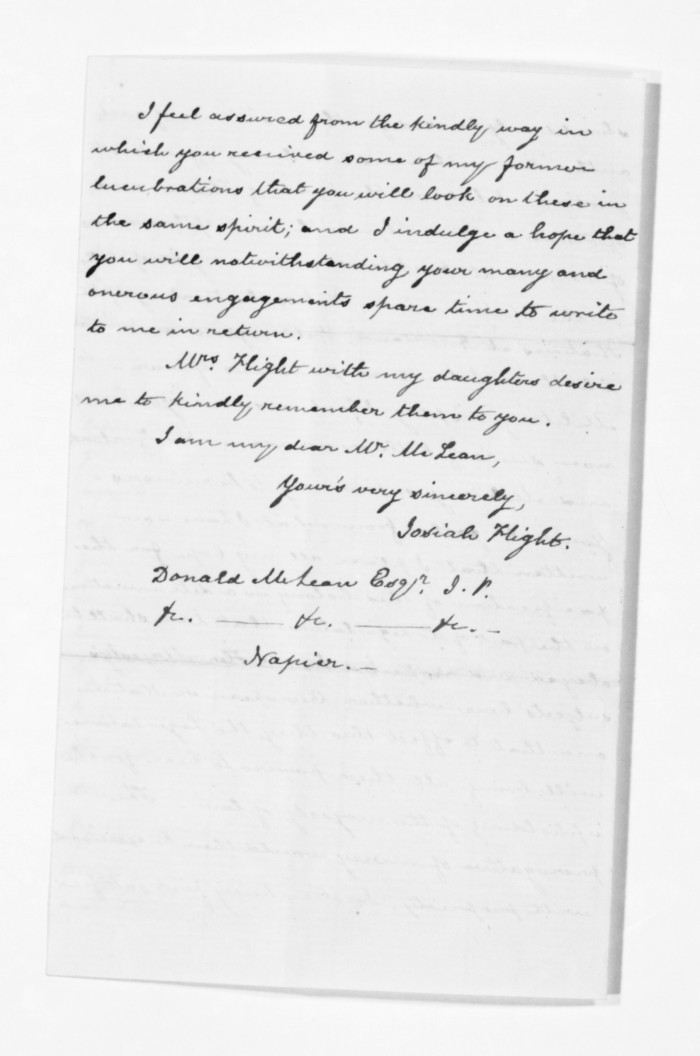 I feel assured from the kindly way in
which you received some of my former
lucubrations that you will look on these in
the same spirit; and I indulge a hope that
you will notwithstanding your many and
onerous engagements spare time to write
to me in return.
Mrs. Flight with my daughters desire
me to kindly remember them to you.
I am my dear Mr. McLean,
Your's very sincerely,
Josiah Flight.
Donald McLean Esqr. J.P.
&c. — &c. — &c. —
Napier. —